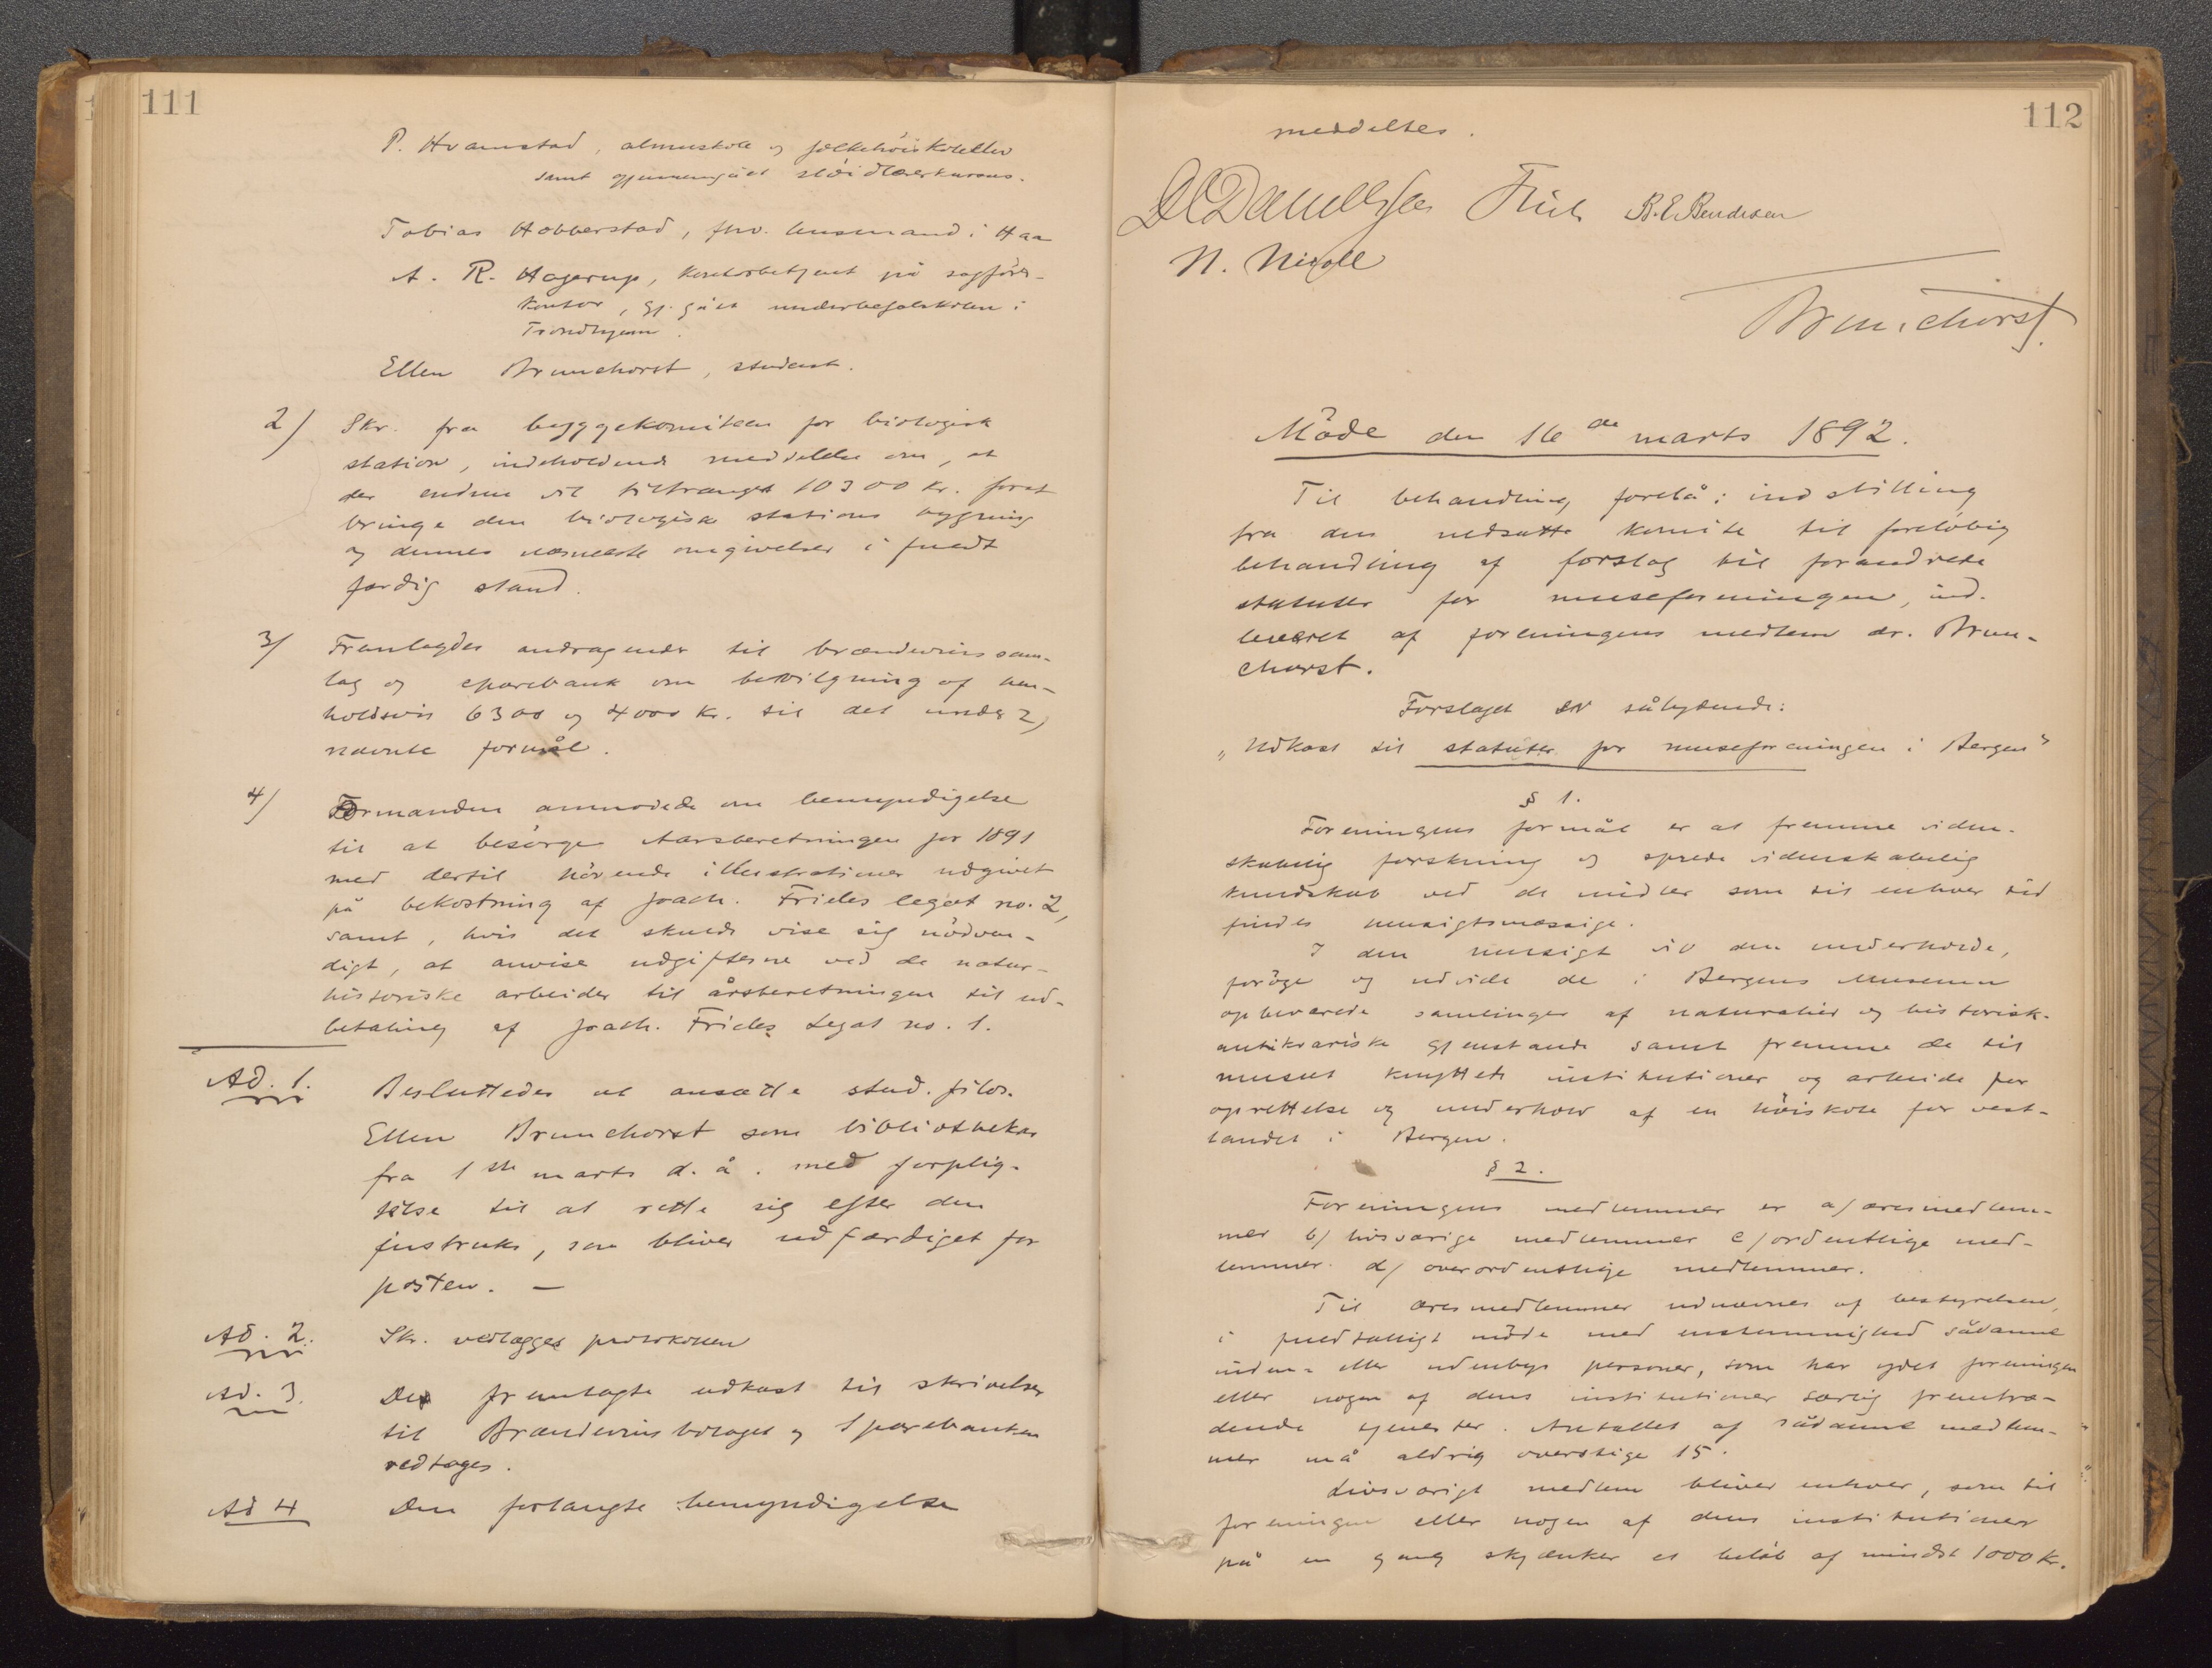 111
P. Hvamstad, almuskole og folkehöiskoleelev
samt gjennemgået slöidlærerkursus.
Tobias Hobberstad, fhv. husmand i Haa
A. R. Hagerup, kontorbetjent på sagförer-
kontor, gj.gået underbefalsskolen i
Trondhjem.
Ellen Brunchorst, student.
2) Skr. fra byggekomiteen for biologisk
station, indeholdende meddelelse om, at
der endnu vil tiltrænges 10300 kr. forat
bringe den biologiske stations bygning
og dennes nærmeste omgivelser i fuldt
færdig stand.
3) Fremlagdes andragender til brændevinssam-
lag og sparebank om bevilgning af hen-
holdsvis 6300 og 4000 kr. til det under 2)
nævnte formål.
4) Formanden anmodede om bemyndigelse
til at besörge Aarsberetningen for 1891
med dertil hörende illustrationer udgivet
på bekostning af Joach. Frieles legat no. 2,
samt, hvis det skulde vise sig nödven-
digt, at anvise udgifterne ved de natur-
historiske arbeider til årsberetningen til ud-
betaling af Joach. Frieles Legat no. 1.
Ad. 1. Besluttedes at ansætte stud. filos.
Ellen Brunchorst som bibliothekar
fra 1ste marts d. å. med forplig-
telse til at rette sig efter den
instruks, som bliver udfærdiget for
posten. —
Ad. 2. Skr. vedlægges protokollen
Ad. 3. De fremlagte udkast til skrivelser
til Brændevinsbolaget og Sparebanken
vedtoges.
Ad 4 Den forlangte bemyndigelse
112
meddeltes.
DC Danielssen Friele B. E. Bendixen
N. Nicoll
Brunchorst.
Möde den 16de marts 1892.
Til behandling forelå: indstilling
fra den nedsatte komite til foreløbig
behandling af forslag til forandrede
statuter for museforeningen, ind-
leveret af foreningens medlem dr. Brun-
chorst.
Forslaget er sålydende:
„Udkast til statuter for museforeningen i Bergen"
§ 1.
Foreningens formål er at fremme viden-
skabelig forskning og sprede videnskabelig
kundskab ved de midler som til enhver tid
findes hensigtsmæssige.
I den hensigt vil den underholde,
foröge og udvide de i Bergens Museum
opbevarede samlinger af naturalier og historisk-
antikvariske gjenstande samt fremme de til
museet knyttede institutioner og arbeide for
oprettelse og underhold af en höiskole for vest-
landet i Bergen.
§ 2.
Foreningens medlemmer er a/ æresmedlem-
mer b/ livsvarige medlemmer c/ ordentlige med-
lemmer d/ overordentlige medlemmer.
Til æresmedlemmer udnævnes af bestyrelsen,
i fuldtalligt möde med enstemmighed sådanne
inden- eller udenbys personer, som har ydet foreningen
eller nogen af dens institutioner særlig fremtræ-
dende tjenester. Antallet af sådanne medlem-
mer må aldrig overstige 15.
Livsvarigt medlem bliver enhver, som til
foreningen eller nogen af dens institutioner
på en gang skjænker et belöb af mindst 1000 kr.